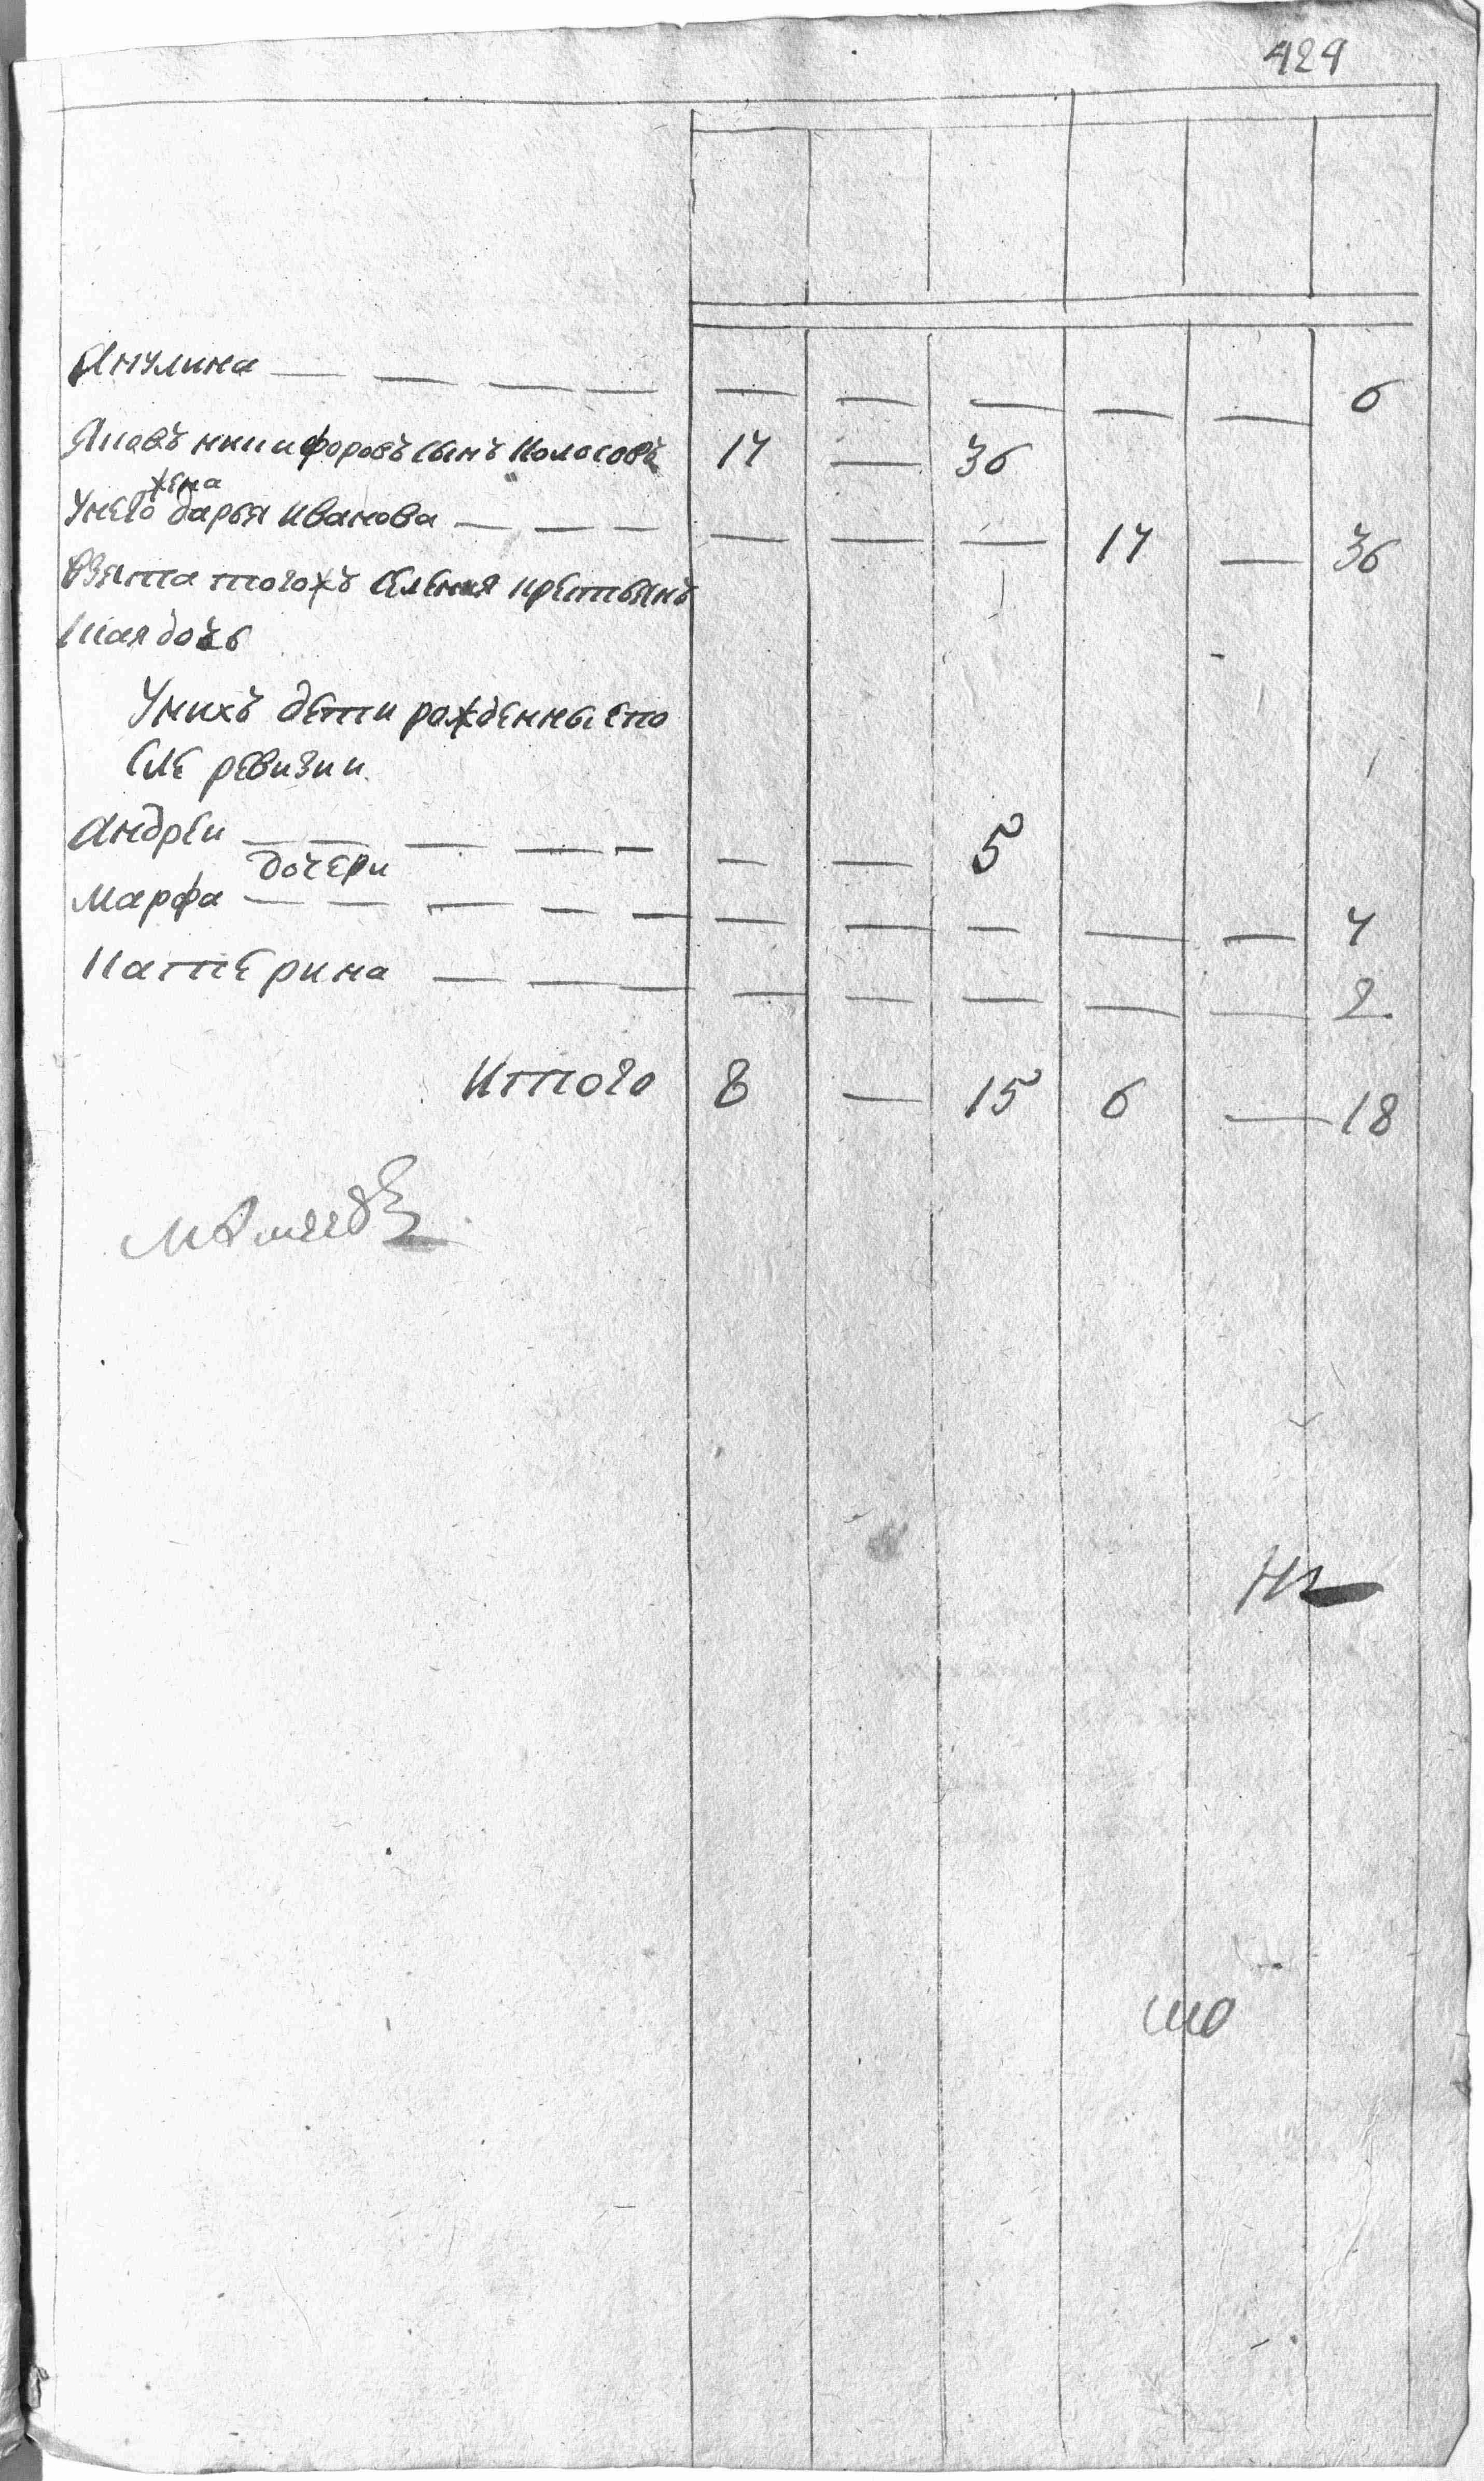 424
Акулина — — — — — — — — — 6
Яковъ никифоровъ сынъ Колосовъ 14 — 36
жена
Унего дарья иванова — — — — — — 14 — 36
Взята тогожъ селения крестьянъ
ская дочь
Унихъ дети рожденные по
сле ревизии
Андреи — — — — — — 5
дочери
Марфа — — — — — — — — — — 4
Катерина — — — — — — — — 2
Итого 8 — 15 6 — 18